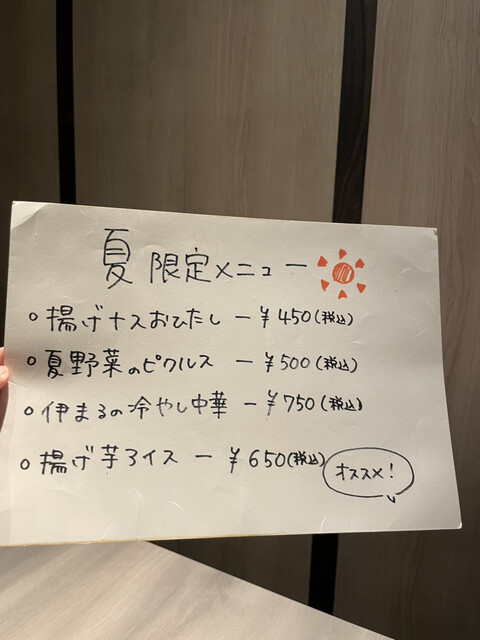 夏限定メニュー
○揚げナスおひたし ー ¥450(税込)
○夏野菜のピクルス ー ¥500(税込)
○伊まるの冷やし中華 ー ¥750(税込)
○揚げ芋アイス ー ¥650(税込)
オススメ!